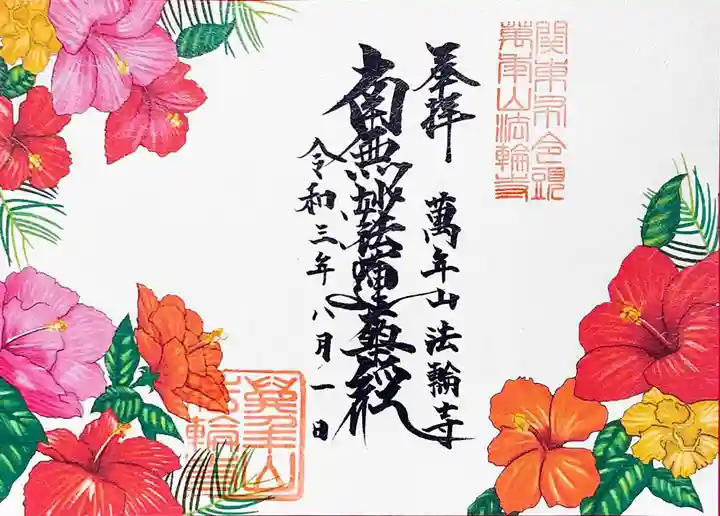 関東布令頭
萬年山法輪寺
奉拝　萬年山法輪寺
南無妙法蓮華経
令和三年八月一日
萬年山
法輪寺